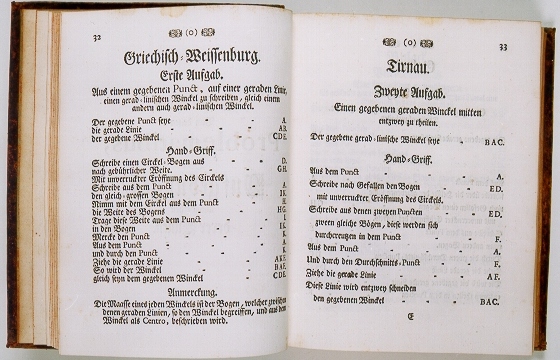 32
(o)
Griechisch-Weissenburg.
Erste Aufgab.
Aus einem gegebenen Punct, auf einer geraden Linie,
einen gerad-linischen Winckel zu schreiben, gleich einem
andern auch gerad-linischen Winckel.
Der gegebene Punct seye - A.
die gerade Linie - AB.
der gegebene Winckel - CDE.
Hand-Griff.
Schreibe einen Circkel-Bogen aus - D.
nach gebührlicher Weite. - GH.
Mit unverruckter Eröffnung des Circkels
Schreibe aus dem Punct - A.
den gleich-grossen Bogen - IK.
Nimm mit dem Circkel aus dem Punct - H.
die Weite des Bogens - HG.
Trage diese Weite aus dem Punct - I.
in den Bogen - IK.
Mercke den Punct - K.
Aus dem Punct - A.
und durch den Punct - K.
Ziehe die gerade Linie - AKF.
So wird der Winckel - BAF.
gleich seyn dem gegebenen Winckel - CDE.
Anmerckung.
Die Maasse eines jeden Winckels ist der Bogen, welcher zwischen
denen geraden Linien, so den Winckel begreiffen, und aus dem
Winckel als Centro, beschrieben wird.
(o)
33
Tirnau.
Zweyte Aufgab.
Einen gegebenen geraden Winckel mitten
entzwey zu theilen.
Der gegebene gerad-linische Winckel seye - BAC.
Hand-Griff.
Aus dem Punct - A.
Schreibe nach Gefallen den Bogen - ED.
mit unverruckter Eröffnung des Circkels.
Schreibe aus denen zweyen Puncten - ED.
zween gleiche Bögen, diese werden sich
durchcreutzen in dem Punct - F.
Aus dem Punct - A.
Und durch den Durchschnitts-Punct - F.
Ziehe die gerade Linie - AF.
Diese Linie wird entzwey schneiden
den gegebenen Winckel - BAC.
E